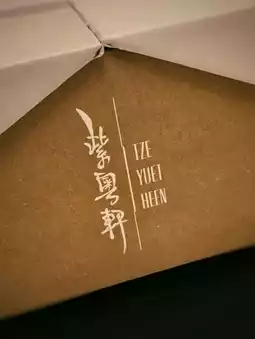 紫粤軒
TZE
YUET
HEEN